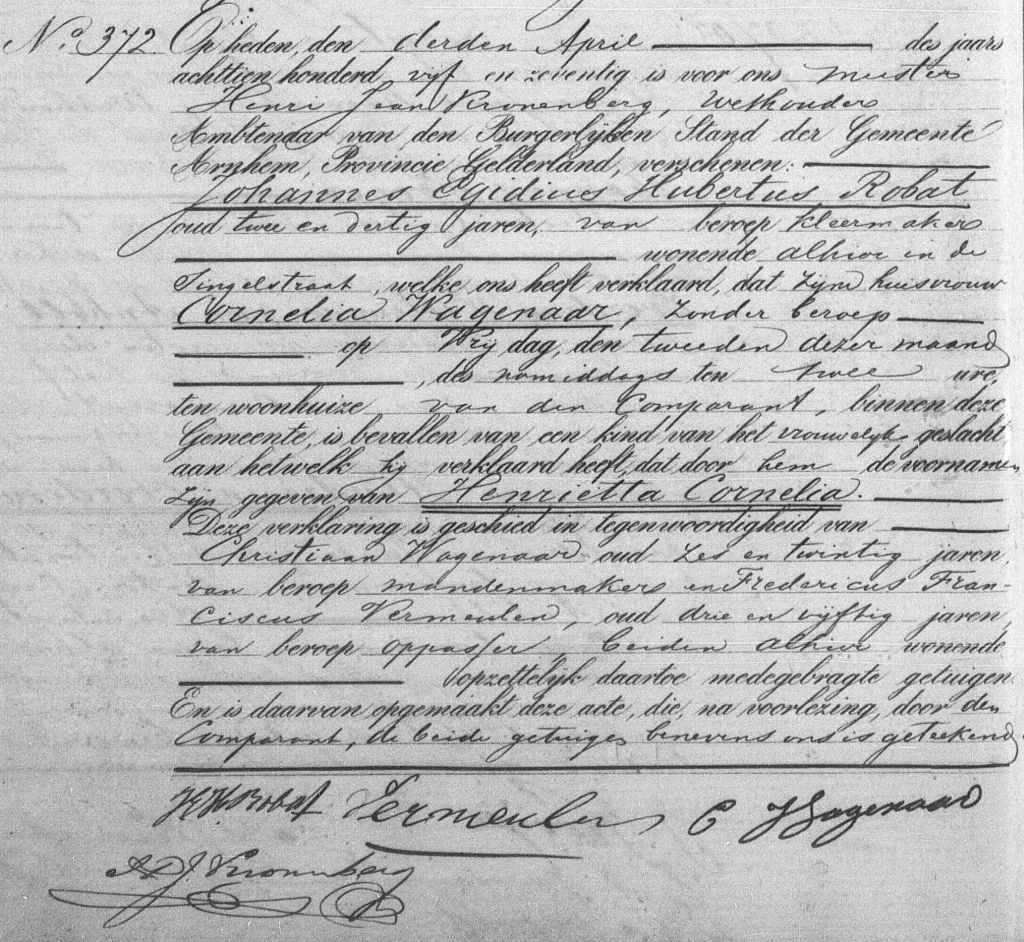 No. 372. Op heden, den derden April des jaars
achttien honderd vijf en zeventig is voor ons meester
Henri Jean Kronenberg, Wethouder
Ambtenaar van den Burgerlijken Stand der Gemeente
Arnhem, Provincie Gelderland, verschenen:
Johannes Egidius Hubertus Robat
oud twee en dertig jaren, van beroep kleermaker
wonende alhier in de
Singelstraat, welke ons heeft verklaard, dat zijne huisvrouw
Cornelia Wagenaar, zonder beroep
op Vrijdag, den tweeden dezer maand
, des namiddags ten twee ure,
ten woonhuize van den Comparant, binnen deze
Gemeente, is bevallen van een kind van het vrouwelijk geslacht
aan hetwelk hij verklaard heeft, dat door hem de voornamen
zijn gegeven van Henrietta Cornelia.
Deze verklaring is geschied in tegenwoordigheid van
Christiaan Wagenaar oud zes en twintig jaren
van beroep mandenmaker en Fredericus Fran-
ciscus Vermeulen, oud drie en vijftig jaren,
van beroep oppasser, beiden alhier wonende
opzettelijk daartoe medegebragte getuigen.
En is daarvan opgemaakt deze acte, die, na voorlezing, door den
Comparant, de beide getuigen benevens ons is geteekend.
Robat Vermeulen C Wagenaar
Kronenberg